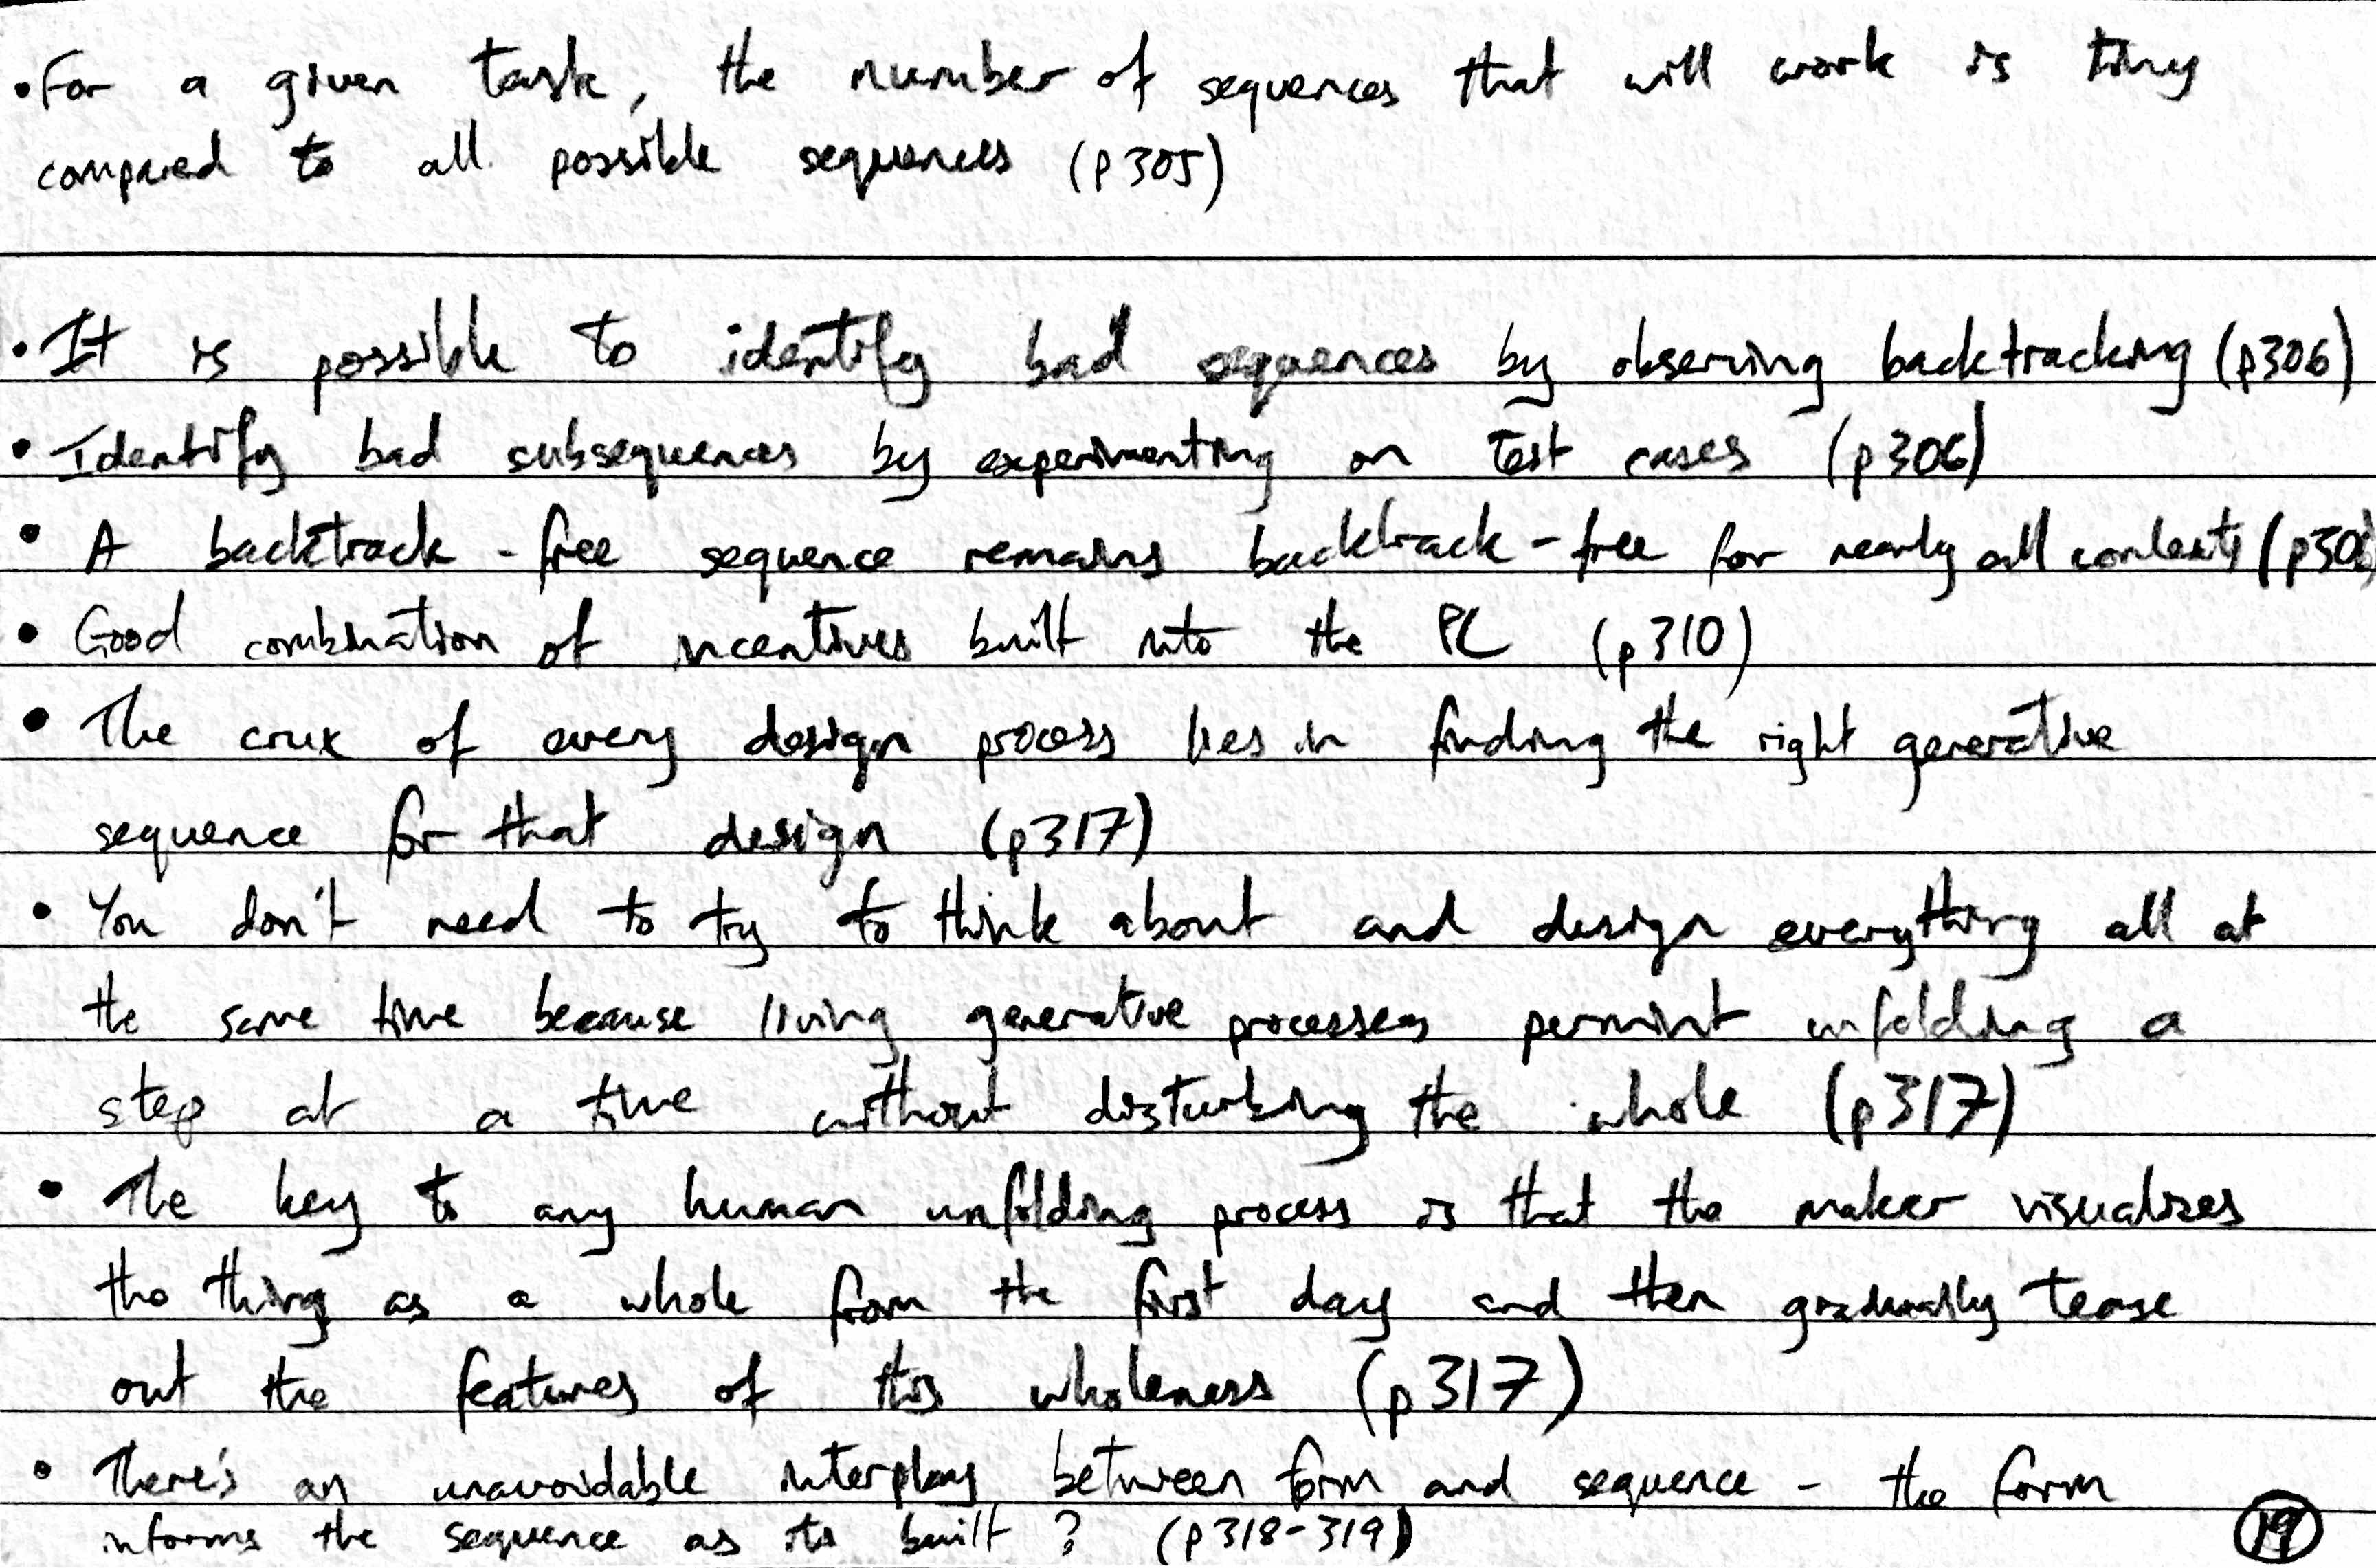 • For a given task, the number of sequences that will work is tiny
compared to all possible sequences (p305)
• It is possible to identify bad sequences by observing backtracking (p306)
• Identify bad subsequences by experimenting on test cases (p306)
• A backtrack-free sequence remains backtrack-free for nearly all contexts (p308)
• Good combination of incentives built into the PC (p310)
• The crux of every design process lies in finding the right generative
sequence for that design (p317)
• You don't need to try to think about and design everything all at
the same time because living generative processes permit unfolding a
step at a time without disturbing the whole (p317)
• The key to any human unfolding process is that the maker visualises
the thing as a whole from the first day and then gradually tease
out the features of this wholeness (p317)
• There's an unavoidable interplay between form and sequence - the form
informs the sequence as its built? (p318-319)
19